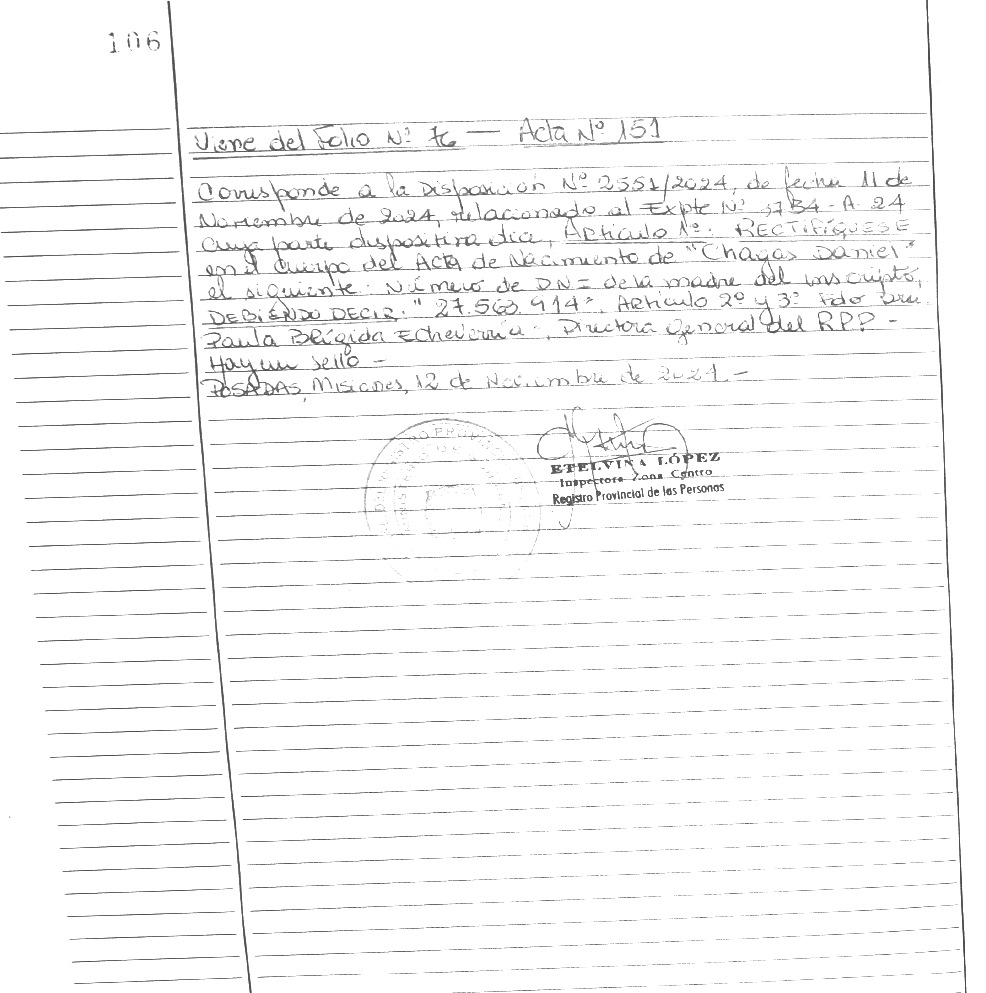 106
Viene del Folio Nº 76 — Acta Nº 151
Corresponde a la Disposición Nº 2551/2024, de fecha 11 de
Noviembre de 2024, relacionado al Expte Nº 3734-A-24
cuya parte dispositiva dia, Articulo 1º: RECTIFÍQUESE
en el cuerpo del Acta de Nacimiento de "Chagas Daniel"
el siguiente: Número de DNI de la madre del inscripto,
DEBIENDO DECIR: "27.563.914". Articulo 2º y 3º Fdo
Paula Brígida Echeverría, Directora General del RPP -
Hay un sello -
POSADAS, Misiones, 12 de Noviembre de 2024 -
ETELVINA LÓPEZ
Inspectora Zona Centro
Registro Provincial de las Personas